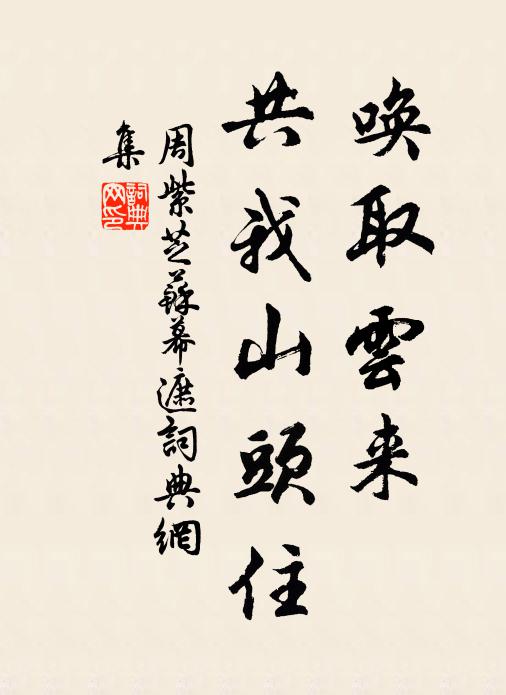 唤取雲来
共我山頭住
周紫芝蘇幕遮詞典網
集
詞典
网印